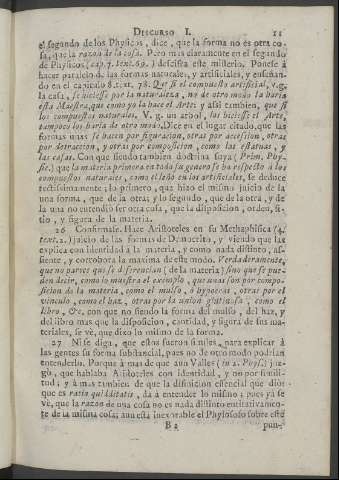 DISCURSO I. 11
el segundo de los Physicos, dice, que la forma no es otra co-
sa, que la razon de la cosa. Pero mas claramente en el segundo
de Physicos (cap. 7. text. 69.) descifra este misterio. Ponese à
hacer paralelo de las formas naturales, y artificiales, y enseñan-
do en el capitulo 8. text. 78. Que si el compuesto artificial, v.g.
la casa, se hiciesse por la naturaleza, no de otro modo la haria
esta Maestra, que como yo la hace el Arte: y assi tambien, que si
los compuestos naturales, V. g. un arbol, los hiciesse el Arte,
tampoco los haria de otro modo. Dice en el lugar citado, que las
formas unas se hacen por figuracion, otras por accession, otras
por detraccion, y otras por composicion, como las estatuas, y
las casas. Con que siendo tambien doctrina suya; (Prim. Phy-
sic.) que la materia primera en todo su genero se ha respecto à los
compuestos naturales, como el leño en los artificiales, se deduce
rectissimamente; lo primero, que hizo el mismo juicio de la
una forma, que de la otra; y lo segundo, que de la otra, y de
la una no entendió ser otra cosa, que la disposicion, orden, si-
tio, y figura de la materia.
26 Confirmase. Hace Aristoteles en su Methaphisica (4.
text. 2.) juicio de las formas de Democrito, y viendo que las
explica con identidad à la materia, y como nada distinto, as-
siente, y corrobora la maxima de este modo. Verdaderamente,
que no parece que se diferencian (de la materia) sino que se pue-
den decir, como lo muestra el exemplo, que unas son por compo-
sicion de la materia, como el mulso, ò hypocràs, otras por el
vinculo, como el haz, otras por la union glutinosa, como el
libro, &c. con que no siendo la forma del mulso, del haz, y
del libro mas que la disposicion, cantidad, y figura de sus ma-
teriales, se vé, que dixo lo mismo de la forma.
27 Ni se diga, que estos fueron similes, para explicar à
las gentes su forma substancial, pues no de otro modo podrian
entenderlo. Porque à mas de que aun Valles (in 2. Phys.) juz-
gò, que hablaba Aristoteles con identidad, y no por simili-
tud; y à mas tambien de que la difinicion essencial que dió:
que es ratio quidditatis, da à entender lo mismo; pues ya se
vé, que la razon de una cosa no es nada distinto entitativamen-
te de la misma cosa; aun està inexorable el Phylosofo sobre este
B 2 pun-